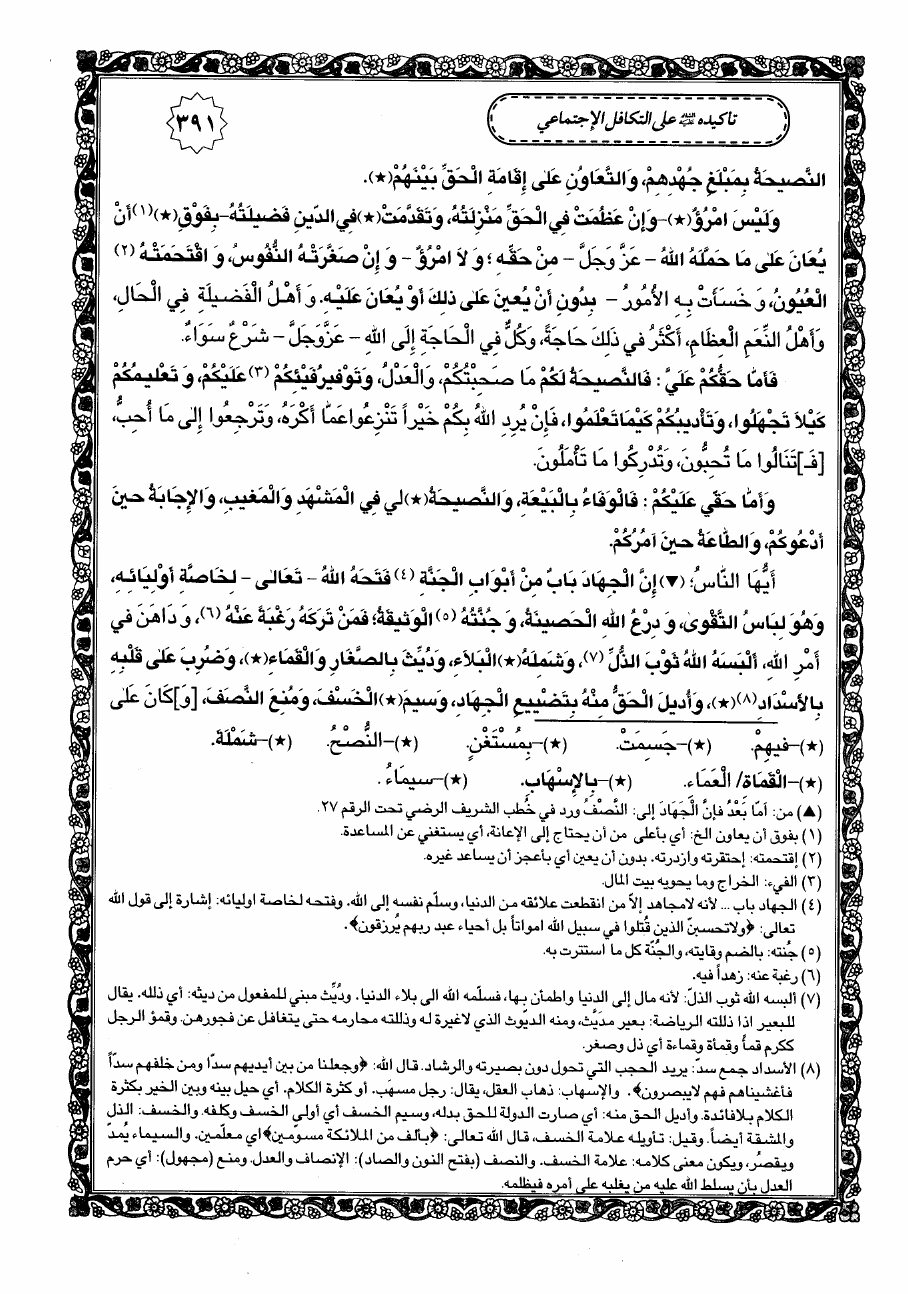 تاكيده عليه السلام على التكافل الإجتماعي
٣٩١
النَّصيحَةُ بِمَبْلَغِ جُهْدِهِمْ، وَالتَّعَاوُنِ عَلى إِقَامَةِ الْحَقِّ بَيْنَهُمْ(★).
وَلَيْسَ امْرُؤٌ(★)-وَإِنْ عَظُمَتْ فِي الْحَقِّ مَنْزِلَتُهُ، وَتَقَدَّمَتْ(★)فِي الدّينِ فَضيلَتُهُ-بِفَوْقِ(★)(١)أَنْ
يُعَانَ عَلى مَا حَمَّلَهُ اللهُ - عَزَّ وَجَلَّ - مِنْ حَقِّهِ؛ وَلَا امْرُؤٌ - وَ إِنْ صَغَّرَتْهُ النُّفُوسُ، وَ اقْتَحَمَتْهُ (٢)
الْعُيُونُ، وَ خَسَأَتْ بِهِ الأُمُورُ - بِدُونِ أَنْ يُعينَ عَلى ذلِكَ أَوْ يُعَانَ عَلَيْهِ. وَ أَهْلُ الْفَضيلَةِ فِي الْحَالِ،
وَأَهْلُ النِّعَمِ الْعِظَامِ، أَكْثَرُ في ذلِكَ حَاجَةً، وَكُلٌّ فِي الْحَاجَةِ إِلَى اللهِ - عَزَّوَجَلَّ - شَرْعٌ سَوَاءٌ.
فَأَمَّا حَقُّكُمْ عَلَيَّ : فَالنَّصيحَةُ لَكُمْ مَا صَحِبْتُكُمْ، وَالْعَدْلُ، وَتَوْفيرُ فَيْئِكُمْ (٣) عَلَيْكُمْ، وَ تَعْليمُكُمْ
كَيْلَا تَجْهَلُوا، وَتَأْديبُكُمْ كَيْمَا تَعْلَمُوا، فَإِنْ يُرِدِ اللهُ بِكُمْ خَيْراً تَنْزِعُوا عَمَّا أَكْرَهُ، وَتَرْجِعُوا إِلى مَا أُحِبُّ،
[فَـ]تَنَالُوا مَا تُحِبُّونَ، وَتُدْرِكُوا مَا تَأْمَلُونَ.
وَأَمَّا حَقّي عَلَيْكُمْ : فَالْوَفَاءُ بِالْبَيْعَةِ، وَالنَّصيحَةُ(★)لي فِي الْمَشْهَدِ وَالْمَغيبِ، وَالإِجَابَةُ حينَ
أَدْعُوكُمْ، وَالطَّاعَةُ حينَ آمُرُكُمْ.
أَيُّهَا النَّاسُ؛ (▼) إِنَّ الْجِهَادَ بَابٌ مِنْ أَبْوَابِ الْجَنَّةِ (٤) فَتَحَهُ اللهُ - تَعَالى - لِخَاصَّةِ أَوْلِيَائِهِ،
وَهُوَ لِبَاسُ التَّقْوى، وَ دِرْعُ اللهِ الْحَصينَةُ، وَ جُنَّتُهُ (٥) الْوَثيقَةُ؛ فَمَنْ تَرَكَهُ رَغْبَةً عَنْهُ (٦)، وَ دَاهَنَ في
أَمْرِ اللهِ، أَلْبَسَهُ اللهُ ثَوْبَ الذُّلِّ (٧)، وَ شَمِلَهُ(★)الْبَلَاءُ، وَ دُيِّثَ بِالصَّغَارِ وَالْقَمَاءِ(★)، وَ ضُرِبَ عَلى قَلْبِهِ
بِالأَسْدَادِ (٨)(★)، وَ أُديلَ الْحَقُّ مِنْهُ بِتَضْييعِ الْجِهَادِ، وَ سيمَ(★)الْخَسْفَ، وَ مُنِعَ النَّصَفَ، [وَ]كَانَ عَلى
(★)-فيهِمْ. (★)-جَسِمَتْ. (★)-بِمُسْتَغْنٍ. (★)-النُّصْحُ. (★)-شَمْلَةُ.
(★)-الْقَمَاة/ الْعَمَاء. (★)-بِالإِسْهَابِ. (★)-سيمَاءُ.
(▲) من: أَمّا بَعْدُ فإنَّ الْجِهَادَ إلى: النَّصَفَ ورد في خُطب الشريف الرضي تحت الرقم ٢٧.
(١) بفوق أن يعاون الخ: أي بأعلى من أن يحتاج إلى الإعانة، أي يستغني عن المساعدة.
(٢) إقتحمته: إحتقرته وازدرته. بدون أن يعين أي بأعجز أن يساعد غيره.
(٣) الفيء: الخراج وما يحويه بيت المال.
(٤) الجهاد باب ... لأنه لامجاهد إلاّ من انقطعت علائقه من الدنيا، وسلّم نفسه إلى الله. وفتحه لخاصة اوليائه: إشارة إلى قول الله
تعالى: ﴿ولاتحسبنّ الذين قُتلوا في سبيل الله امواتاً بل أحياء عبد ربهم يُرزقون﴾.
(٥) جُنته: بالضم وقايته، والجُنّة كل ما استترت به.
(٦) رغبة عنه: زهداً فيه.
(٧) ألبسه الله ثوب الذلّ: لأنه مال إلى الدنيا واطمأن بها، فسلّمه الله الى بلاء الدنيا. ودُيِّث مبني للمفعول من ديثه: أي ذلله. يقال
للبعير اذا ذللته الرياضة: بعير مديَّث، ومنه الديّوث الذي لاغيرة له وذللته محارمه حتى يتغافل عن فجورهن. وقمؤ الرجل
ككرم قمأً وقمأة وقماءة أي ذل وصغر.
(٨) الأسداد جمع سد: يريد الحجب التي تحول دون بصيرته والرشاد. قال الله: ﴿وجعلنا من بين أيديهم سدّاً ومن خلفهم سدّاً
فأغشيناهم فهم لايبصرون﴾. والإسهاب: ذهاب العقل، يقال: رجل مسهَب. أو كثرة الكلام. أي حيل بينه وبين الخير بكثرة
الكلام بلافائدة. وأديل الحق منه: أي صارت الدولة للحق بدله، وسيم الخسف أي أولي الخسف وكلفه. والخسف: الذل
والمشقة أيضاً. وقيل: تأويله علامة الخسف، قال الله تعالى: ﴿بألف من الملائكة مسوّمين﴾أي معلّمين. والسيماء يُمدّ
ويقصرُ، ويكون معنى كلامه: علامة الخسف. والنصف (بفتح النون والصاد): الإنصاف والعدل. ومنع (مجهول): أي حرم
العدل بأن يسلط الله عليه من يغلبه على أمره فيظلمه.